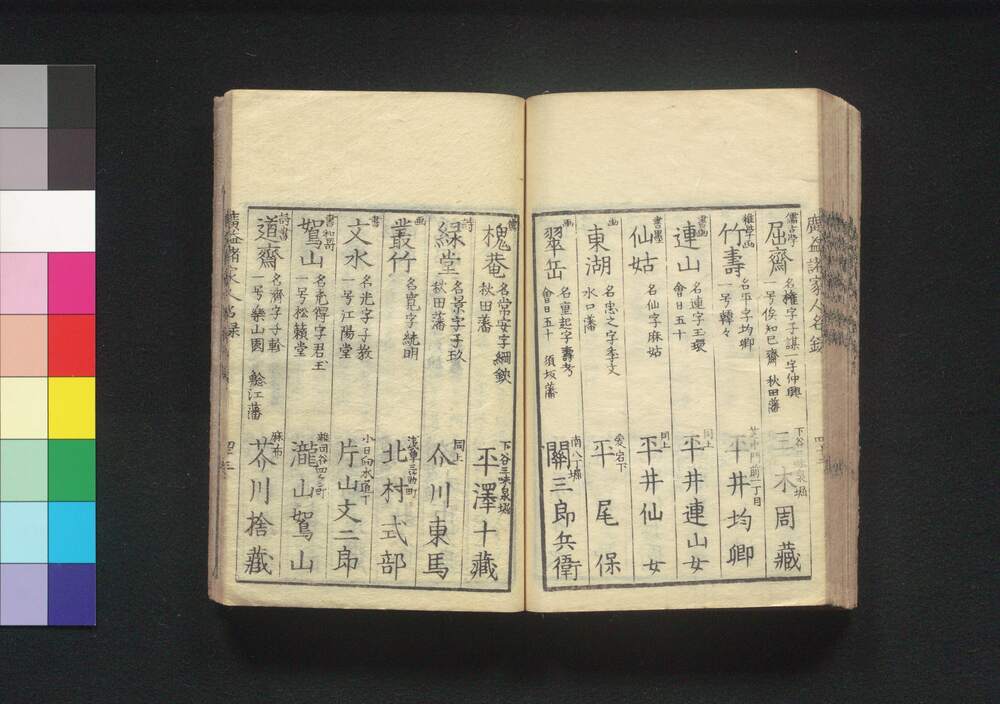 廣益諸家人名録
儒古学 屈齋 名権字子謀一字仲興 一号俟知己齋 秋田藩 下谷三味泉堀 三木周藏
雜学画 竹壽 名平字均卿 一号韓々 芝中門前一丁目 平井均卿
書画 連山 名連字玉瑗 會日五十 同上 平井連山女
書墨 仙姑 名仙字麻姑 同上 平井仙女
画 東湖 名忠之字季文 水口藩 愛宕下 平尾保
画 翠岳 名重起字壽考 會日五十 須坂藩 南八丁堀 關三郎兵衛
儒 槐菴 名常安字綱鉄 秋田藩 下谷三味泉堀 平澤十藏
詩 緑堂 名景字子玖 秋田藩 同上 仌川東馬
画 叢竹 名寛字統明 浅草三筋町 北村式部
書 文水 名光字子教 一号江陽堂 小日向水道丁 片山文二郎
書和哥 鴛山 名光得字君玉 一号松籟堂 瀧山鴛山
詩書 道齋 名齋字子軨 一号樂山園 鯰江藩 麻布 芥川捨藏
廣益諸家人名録